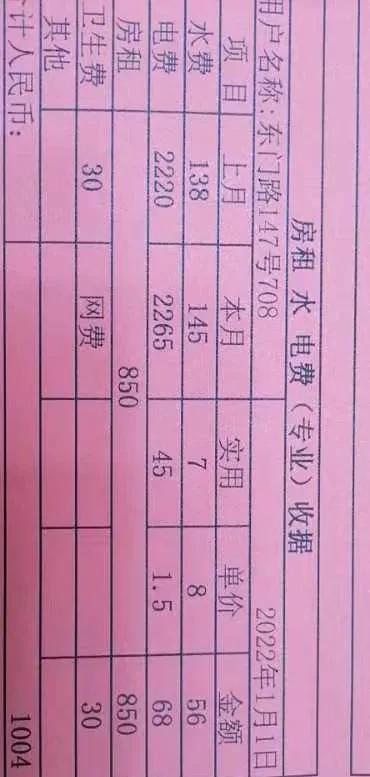 房租 水 电费（专业）收据
用户名称：东门路147号708 2022年1月1日
项目 上月 本月 实用 单价 金额
水费 138 145 7 8 56
电费 2220 2265 45 1.5 68
房租 850 850
卫生费 30 网费 30
其他
计人民币： 1004